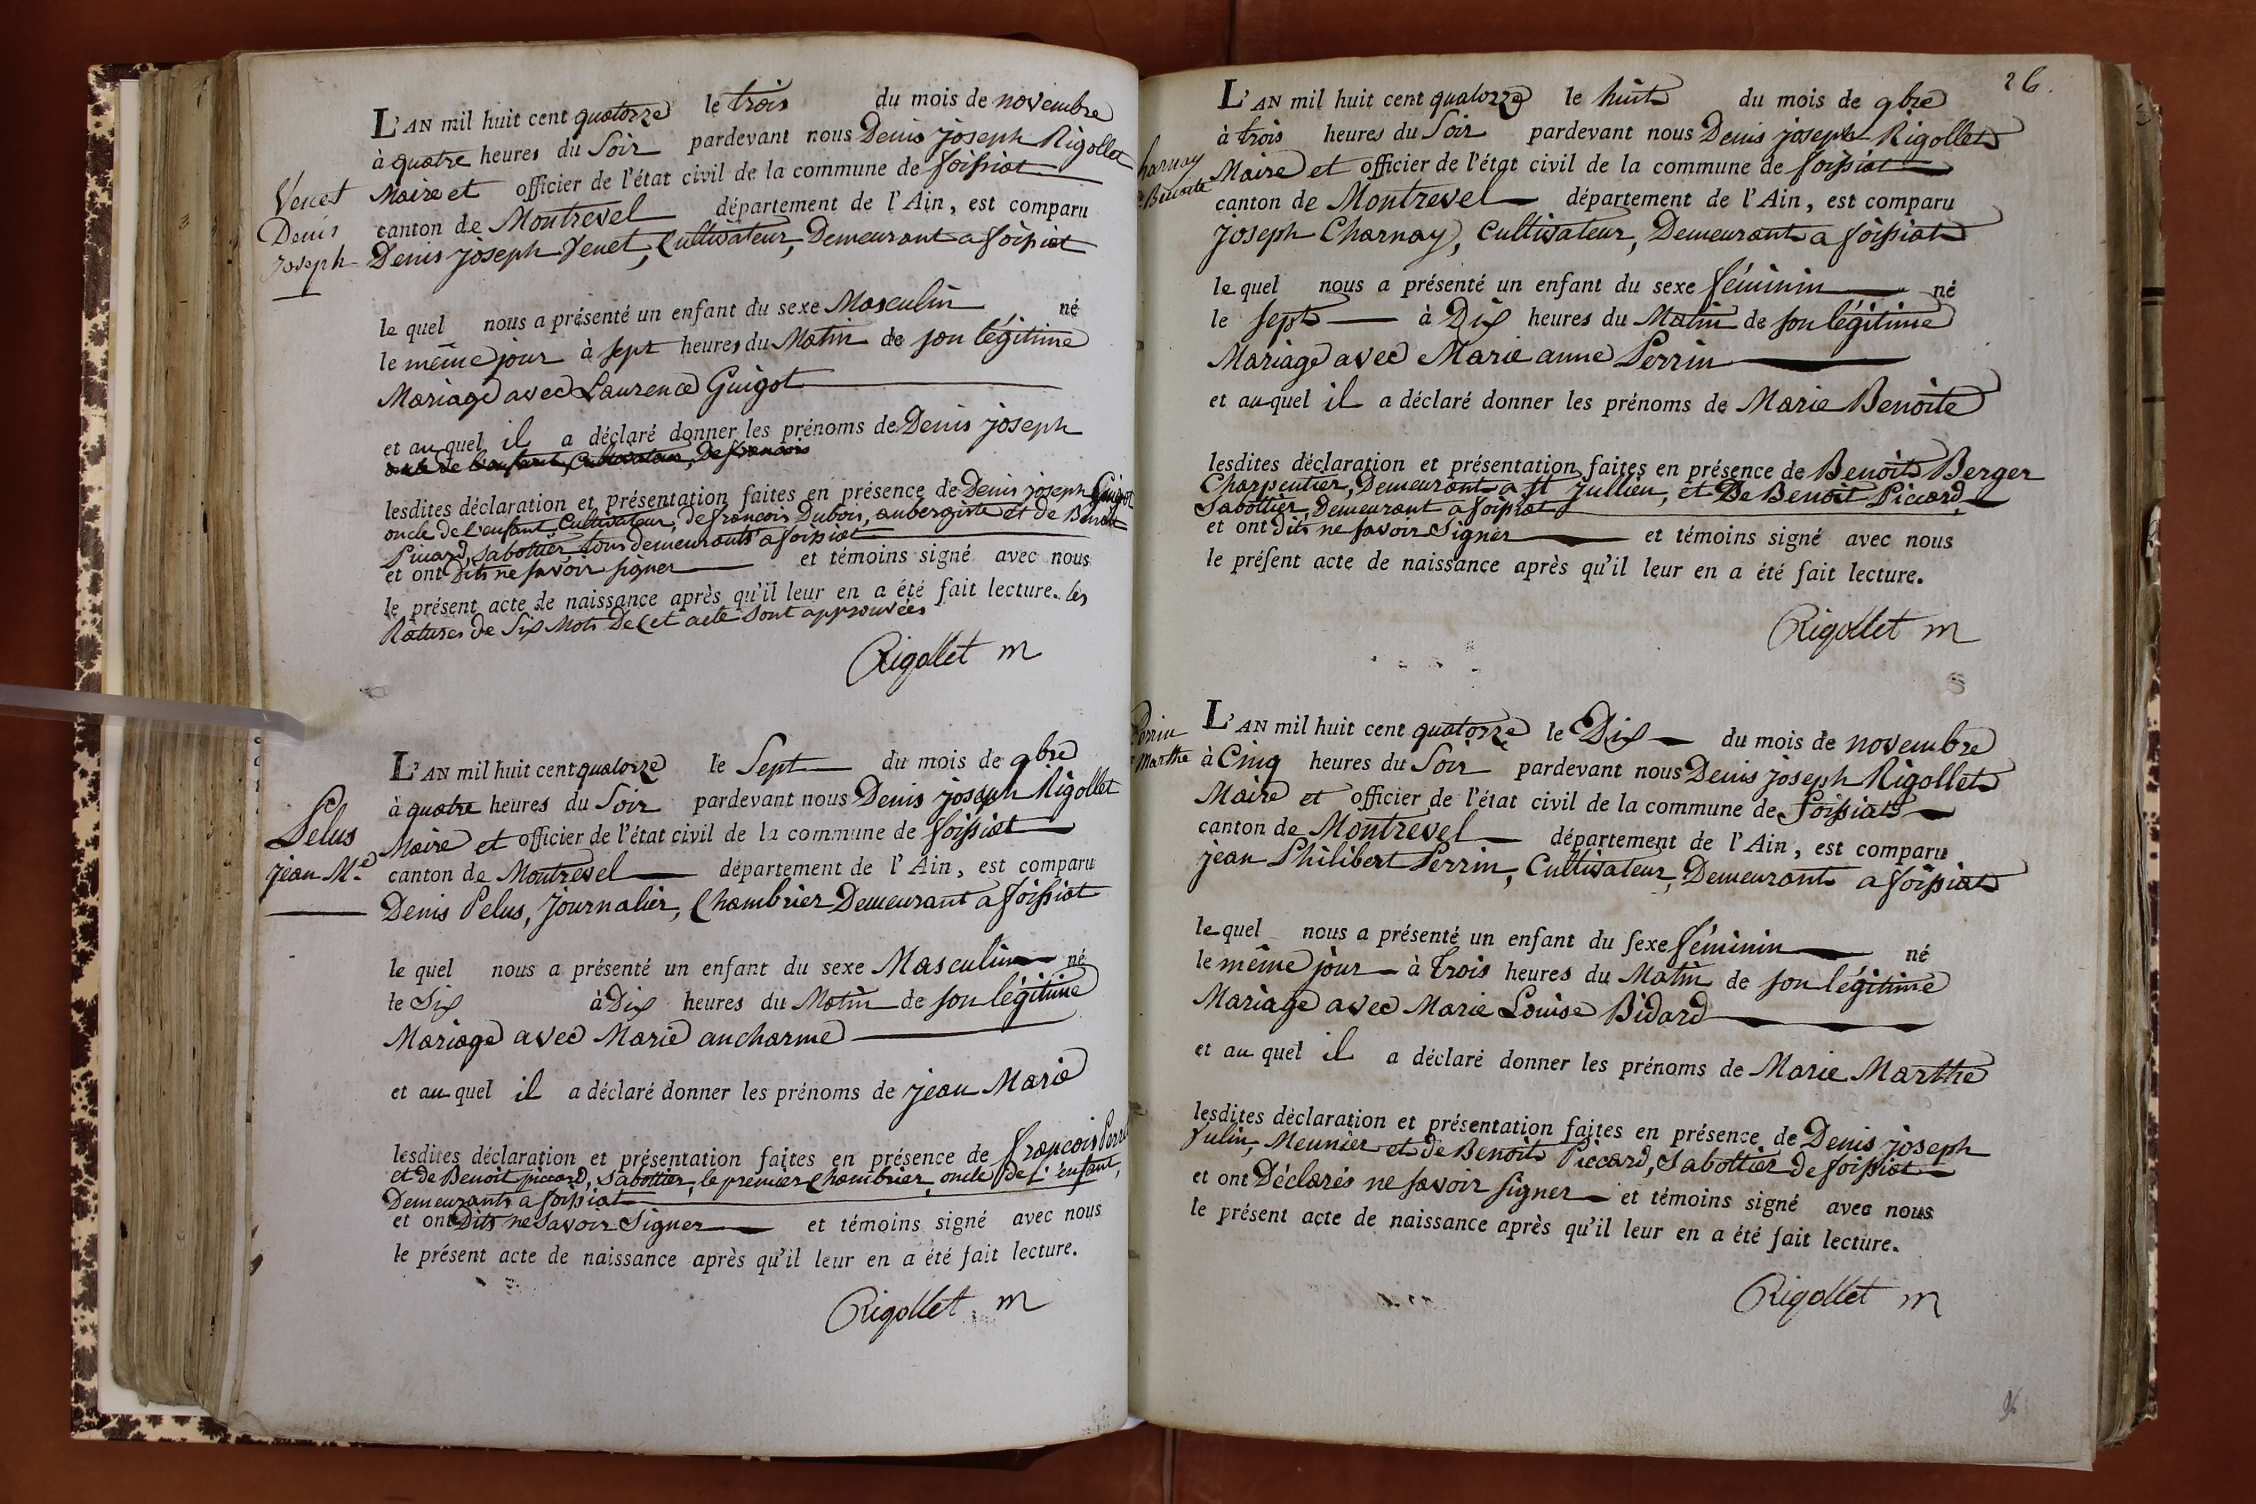 Venet
Denis
joseph
L'AN mil huit cent quatorze le trois du mois de novembre
à quatre heures du Soir pardevant nous Denis joseph Rigollet
Maire et officier de l'état civil de la commune de foissiat
canton de Montrevel département de l'Ain, est comparu
Denis joseph Venet, Cultivateur, Demeurant a foissiat
le quel nous a présenté un enfant du sexe Masculin né
le même jour à sept heures du Matin de son légitime
Mariage avec Laurence Guigot
et au quel il a déclaré donner les prénoms de Denis joseph
oncle de l'enfant, Cultivateur, De francois
lesdites déclaration et présentation faites en présence de Denis joseph Guigot
oncle de l'enfant Cultivateur, De francois Dubois, aubergiste et de Benoit
Picard, Sabottier, tous demeurants a foissiat
et ont Dits ne savoir signer et témoins signé avec nous
le présent acte de naissance après qu'il leur en a été fait lecture. les
Ratures de Six Mots De Cet acte Sont approuvées
Rigollet m
Pelus
jean Me
L'AN mil huit cent quatorze le Sept du mois de 9bre
à quatre heures du Soir pardevant nous Denis joseph Rigollet
Maire et officier de l'état civil de la commune de foissiat
canton de Montrevel département de l'Ain, est comparu
Denis Pelus, journalier, Chambrier Demeurant a foissiat
le quel nous a présenté un enfant du sexe Masculin né
le Six à Dix heures du Matin de son légitime
Mariage avec Marie ancharme
et au quel il a déclaré donner les prénoms de jean Marie
lesdites déclaration et présentation faites en présence de francois
et de Benoit piccard, Sabottier, le premier Chambrier, oncle de l'enfant,
Demeurants a foissiat
et ont Dits ne Savoir Signer et témoins signé avec nous
le présent acte de naissance après qu'il leur en a été fait lecture.
Rigollet m
26.
harnay
Benoite
L'AN mil huit cent quatorze le huit du mois de 9bre
à trois heures du Soir pardevant nous Denis joseph Rigollet
Maire et officier de l'état civil de la commune de foissiat
canton de Montrevel département de l'Ain, est comparu
joseph Charnay, Cultivateur, Demeurant a foissiat
le quel nous a présenté un enfant du sexe féminin né
le sept à Dix heures du Matin de son légitime
Mariage avec Marie anne Perrin
et au quel il a déclaré donner les prénoms de Marie Benoite
lesdites déclaration et présentation faites en présence de Benoit Berger
Charpentier, Demeurant a st jullien, et De Benoit Piccard,
Sabottier, Demeurant a foissiat
et ont dits ne savoir Signer et témoins signé avec nous
le présent acte de naissance après qu'il leur en a été fait lecture.
Rigollet m
Perrin
Marthe
L'AN mil huit cent quatorze le Dix du mois de novembre
à Cinq heures du Soir pardevant nous Denis joseph Rigollet
Maire et officier de l'état civil de la commune de foissiat
canton de Montrevel département de l'Ain, est comparu
jean Philibert Perrin, Cultivateur, Demeurant a foissiat
le quel nous a présenté un enfant du sexe féminin né
le même jour à trois heures du Matin de son légitime
Mariage avec Marie Louise Bidard
et au quel il a déclaré donner les prénoms de Marie Marthe
lesdites déclaration et présentation faites en présence de Denis joseph
Julin, Meunier et de Benoit Piccard, Sabottier de foissiat
et ont Déclarés ne savoir signer et témoins signé avec nous
le présent acte de naissance après qu'il leur en a été fait lecture.
Rigollet m